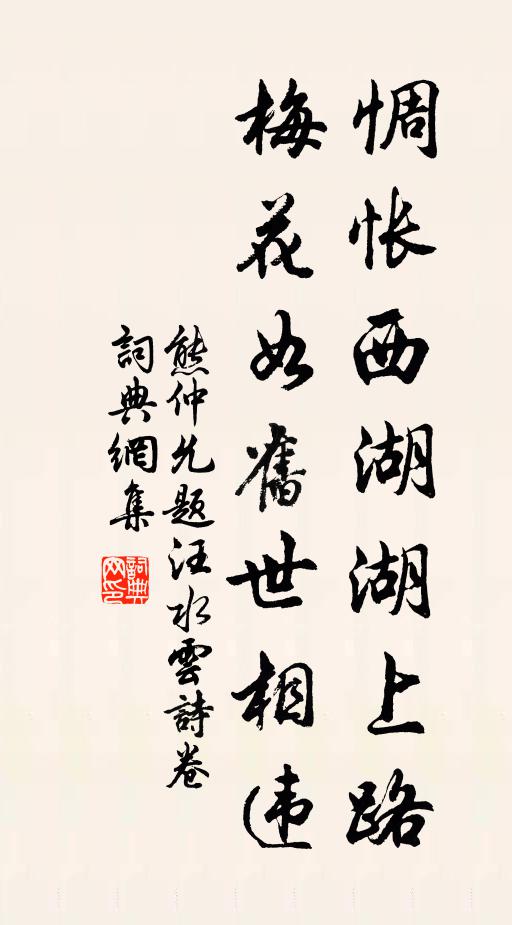 惆怅西湖湖上路
梅花如舊世相违
熊仲允题汪水雲詩卷
詞典網集
詞典网印